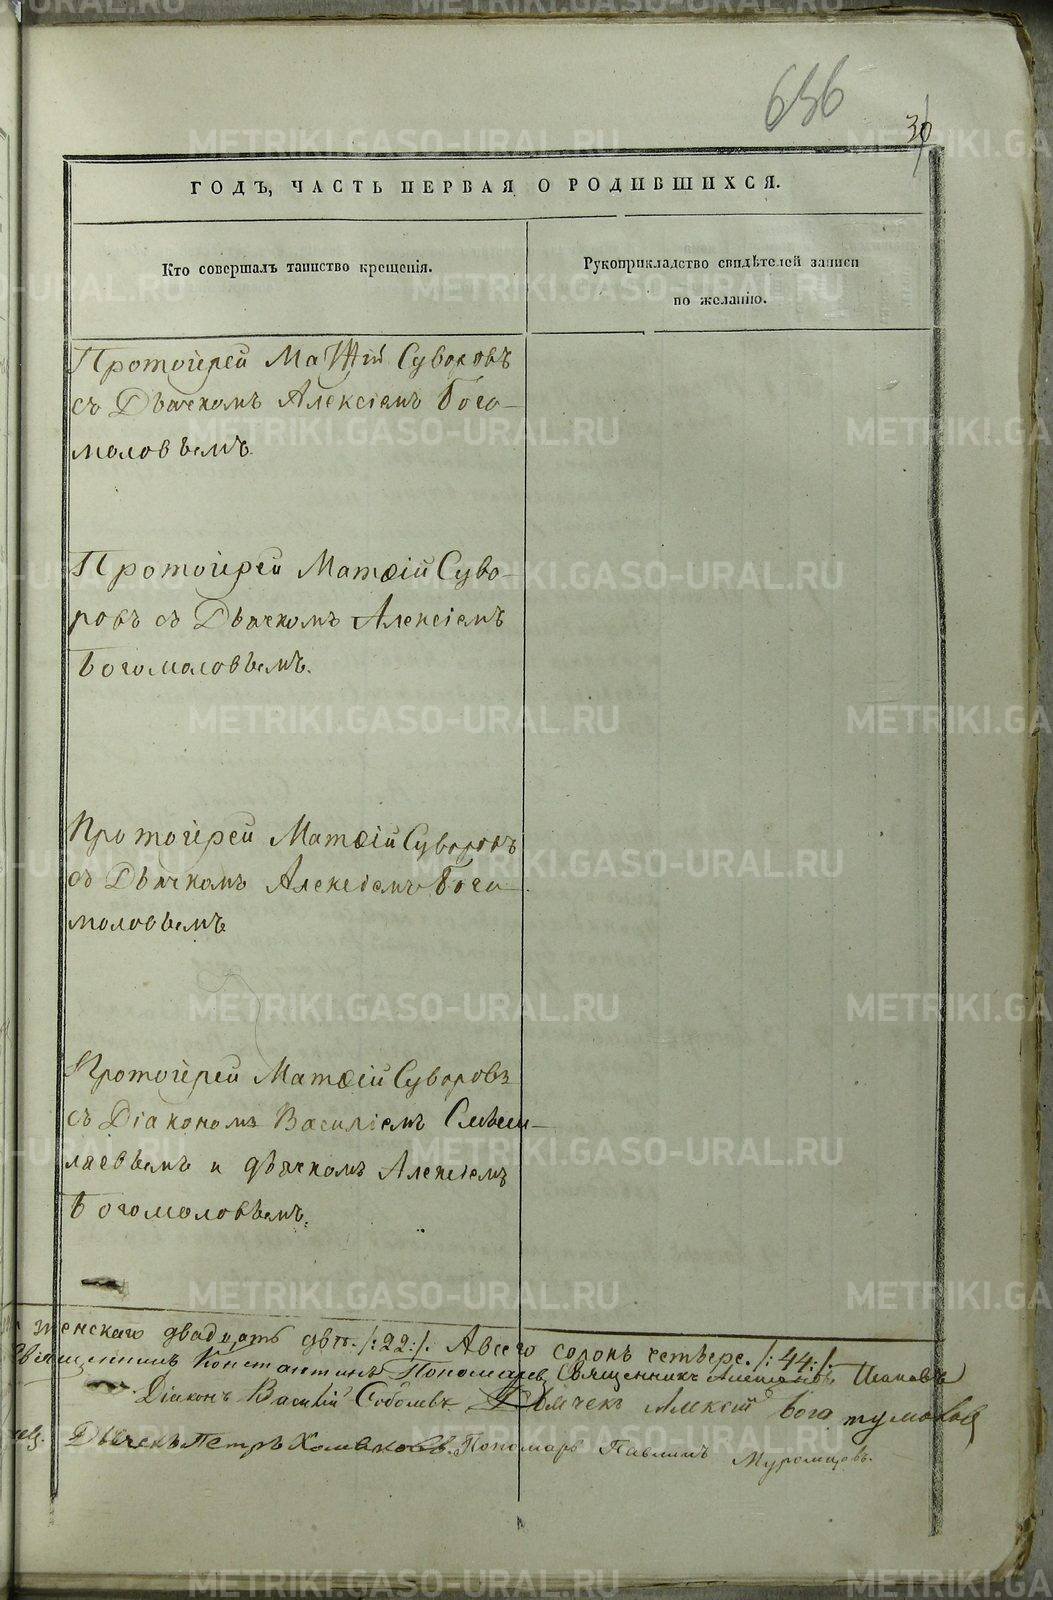 636
ГОДЪ, ЧАСТЬ ПЕРВАЯ О РОДИВШИХСЯ.
Кто совершалъ таинство крещенія.
Рукоприкладство свидѣтелей записи
по желанію.
Протоіерей Матѳій Суворовъ
съ Дьячкомъ Алексіемъ Бого-
моловымъ.
Протоіерей Матѳій Суво-
ровъ съ Дьячкомъ Алексіемъ
Богомоловымъ.
Протоіерей Матѳій Суворовъ
съ Дьячкомъ Алексіемъ Бого-
моловымъ
Протоіерей Матѳій Суворовъ
съ Діакономъ Василіемъ
и дьячкомъ Алексіемъ
Богомоловымъ.
женскаго двадцать двѣ. /:22:/. А всего сорокъ четыре. /:44:/.
Священникъ Константинъ Пономаревъ Священникъ Поповъ
Діаконъ Василій Соболевъ. Дьячекъ Алексій
Дьячекъ Петръ Пономарь Павлинъ Муромцовъ.
METRIKI.GASO-URAL.RU